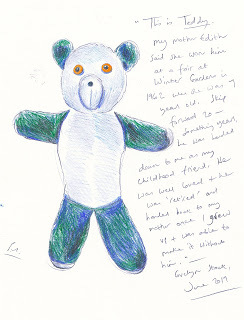 "This is Teddy.
my mother Edith
said she won him
at a fair at
Winter Gardens in
1962 when she was 7
years old. Skip
forward 20-
something years,
he was handed
down to me as my
childhood friend. He
was well loved + he
was "retired" and
handed back to my
mother once I grew
up + was able to
make it without
him."
June 2019